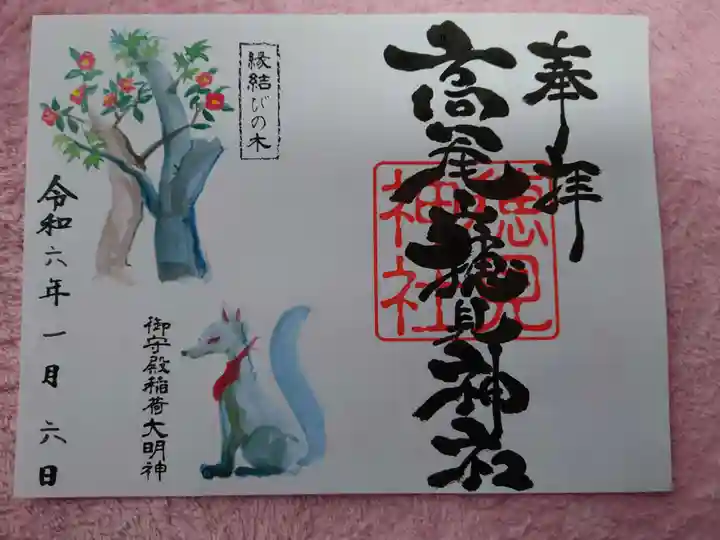 奉拝
高尾山穂見神社
穂見
神社
縁結びの木
御守殿稲荷大明神
令和六年一月六日